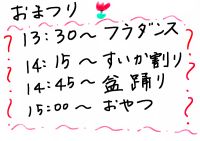 おまつり
13:30～ フラダンス
14:15～ すいか割り
14:45～ 盆踊り
15:00～ おやつ